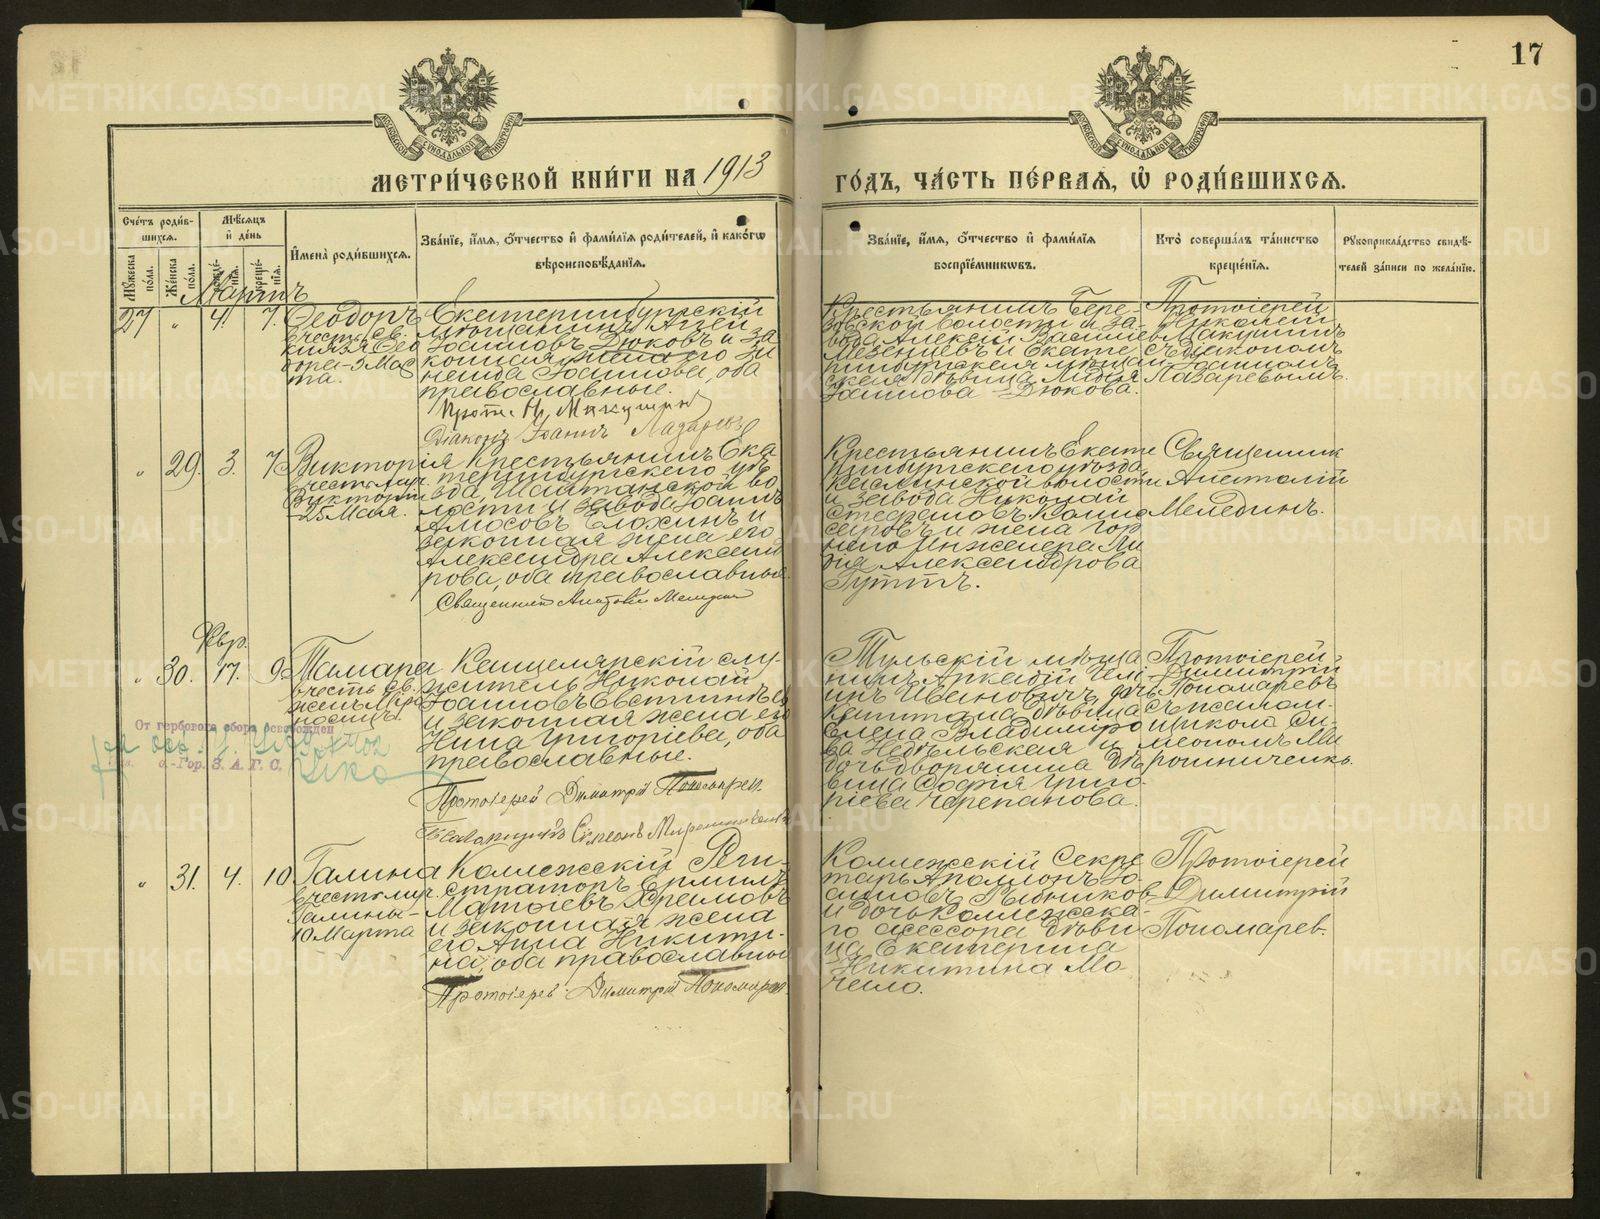 17
МЕТРИ́ЧЕСКОЙ КНИ́ГИ НА 1913 ГО́ДЪ, ЧА́СТЬ ПЕ́РВАЯ, Ѡ РОДИ́ВШИХСЯ.
Сче́тъ роди́в-
шихся.
Мѣ́сяцъ
и де́нь
Мꙋ́жеска
по́ла.
Же́нска
по́ла.
рожде́-
нія.
креще́-
нія.
И́мена̀ роди́вшихся.
Зва́ніе, и́мя, о́тчество и фами́лія роди́телей, и како́гѡ
вѣроисповѣ́данія.
Зва́ніе, и́мя, о́тчество и фами́лія
воспріе́мникѡвъ.
Кто̀ соверша́лъ та́инство
креще́нія.
Рꙋкоприкла́дство свидѣ́-
телей за́писи по жела́нію.
Мартъ
27 " 4. 7.
Ѳеодоръ
въ честь св.
князя Ѳео
дора-5 Мар
та.
Екатеринбургскій
мѣщанинъ Аггей
Іоанновъ Дюковъ и за
конная жена его Зи
наида Іоаннова, оба
православные.
Прот. Н. Макушинъ
Діаконъ Іоаннъ Лазаревъ
Крестьянинъ Бере-
зовской волости и за-
вода Алексѣй Васильев
Мезенцевъ и Екате
ринбургская мѣщан
ская дѣвица Лидія
Іоаннова Дюкова.
Протоіерей
Николай
Макушинъ
съ діакономъ
Іоанномъ
Лазаревымъ.
" 29. 3. 7
Викторія
въ честь муч.
Викторіи
-25 Мая.
Крестьянинъ Ека
теринбургскаго уѣз
да, Шайтанской во
лости и завода Іоаннъ
Амосовъ Елохинъ и
законная жена его
Александра Алексан
рова, оба православные.
Священникъ Анатолій Меледин
Крестьянинъ Екате
ринбургскаго уѣзда
Каслинской волости
и завода Николай
Стефановъ Комис
саровъ и жена гор
наго Инженера Ли
дія Александрова
Гуттъ.
Священник
Анатолій
Мелединъ.
Февр.
" 30. 17. 9.
Тамара
въ честь св.
женъ Мѵро
носицъ.
Канцелярскій слу-
житель Николай
Іоанновъ Евстигнѣевъ
и законная жена его
Нина Григоріева, оба
православные.
Протоіерей Димитрій Пономарев.
Псаломщикъ Симеонъ Мирошниченко
Тульскій мѣща
нинъ Аркадій Иль
инъ Ивановичъ, дочь
Капитана дѣвица
Елена Владиміро
ва Недѣльская и
дочь дворянина дѣ
вица Софія Григо
ріева Черепанова.
Протоіерей
Димитрій
Пономаревъ
съ псалом-
щикомъ Си-
меономъ Ми
рошниченко.
От гербового сбора освобожден
-Гор. З. А. Г. С.
" 31. 4. 10
Галина
въ честь муч.
Галины-
10 Марта
Коллежскій Реги-
страторъ Ермилъ
Матѳеевъ Храмовъ
и законная жена
его Анна Никити-
на, оба православные
Протоіерей Димитрій Пономарев.
Коллежскій Секре
тарь Аполлонъ Іо-
анновъ Рыбников
и дочь Коллежска-
го асессора дѣви-
ца Екатерина
Никитина Мо
чило.
Протоіерей
Димитрій
Пономарев.